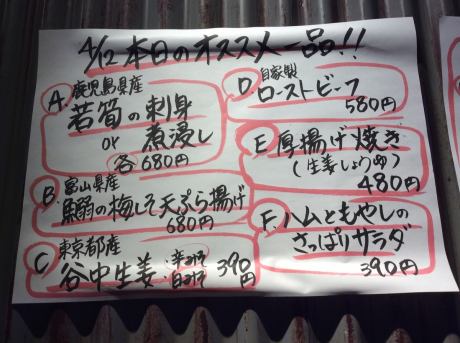 4/12 本日のオススメ一品!!
A. 鹿児島県産
若筍の刺身
or 煮浸し
各680円
B. 富山県産
鰯の梅しそ天ぷら揚げ
680円
C 東京都産
谷中生姜・辛みそ
・白みそ
390円
D 自家製
ローストビーフ
580円
E 厚揚げ焼き
(生姜しょうゆ)
480円
F. ハムともやしの
さっぱりサラダ
390円